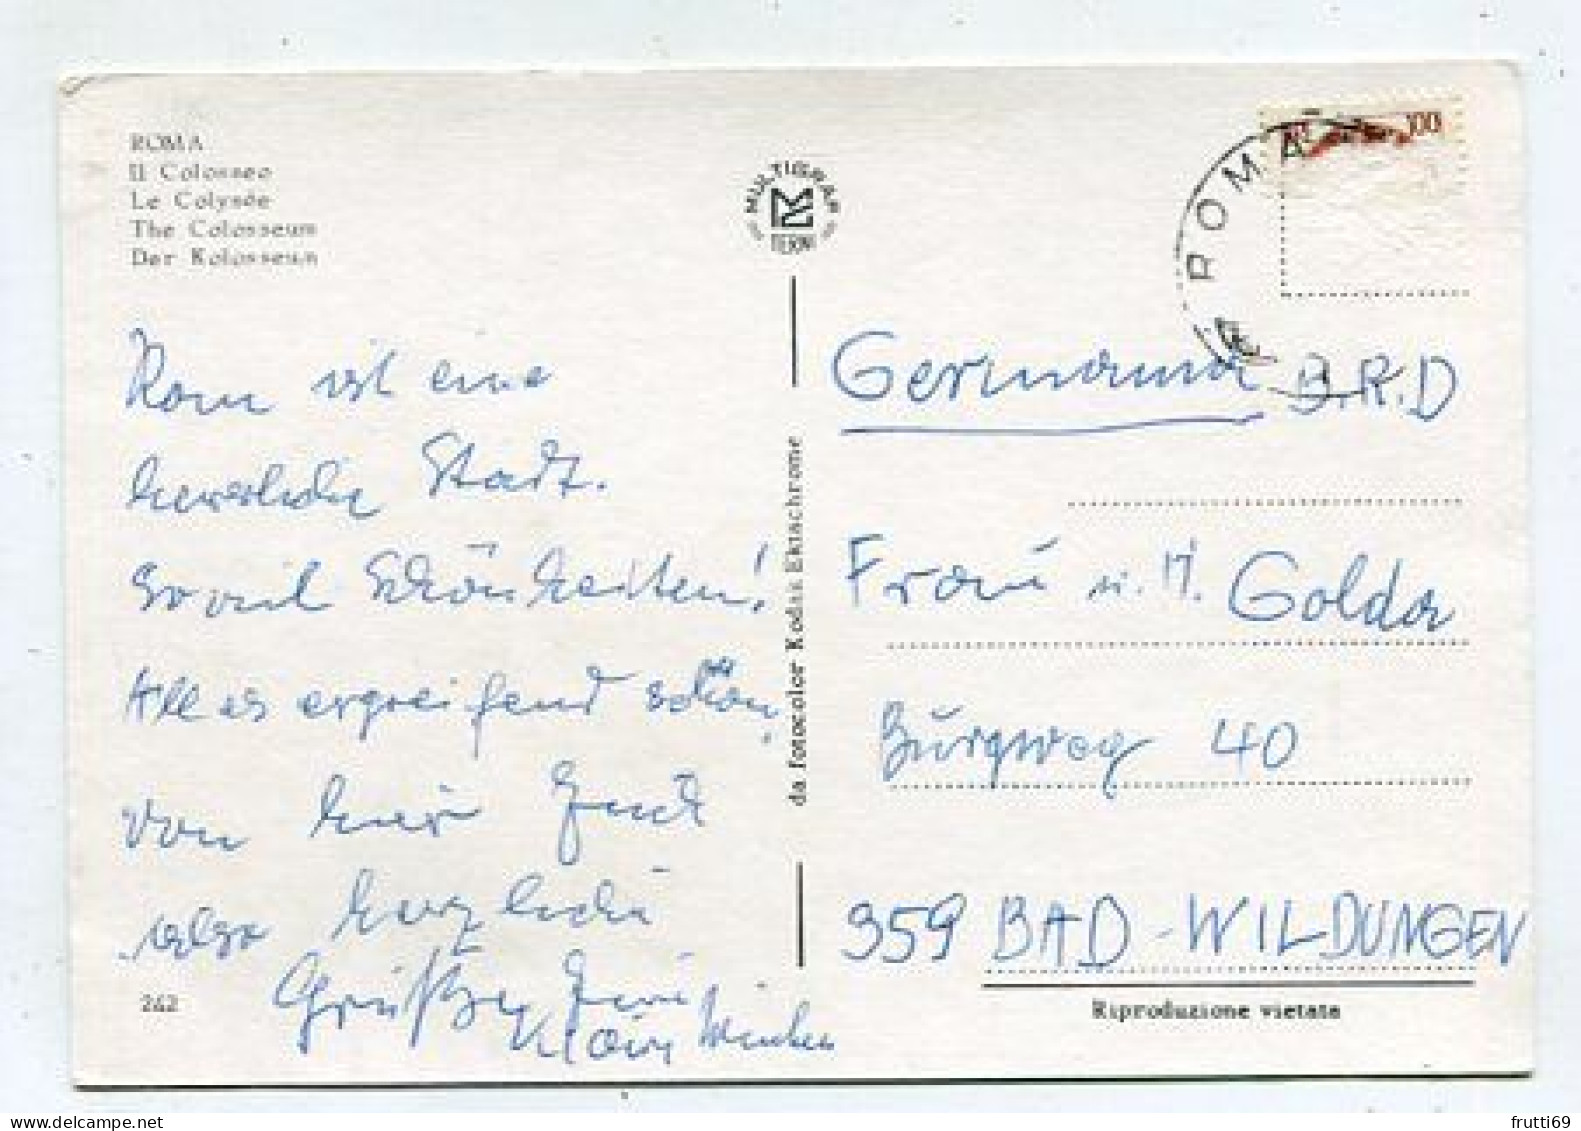 ROMA
Il Colosseo
Le Colysée
The Colosseum
Der Kolosseun
MULTIGRAF
TERNI
ROMA
100
Rom ist eine
herrliche Stadt.
So viel Schönheiten!
Alles ergreifend schön,
von hier Euch
also herzliche
Grüße Eure
Klaus
262
da fotocolor Kodak Ektachrome
Germania B.R.D
Frau u. H. Golda
Burgweg 40
359 BAD-WILDUNGEN
Riproduzione vietata
www.delcampe.net
frutti69